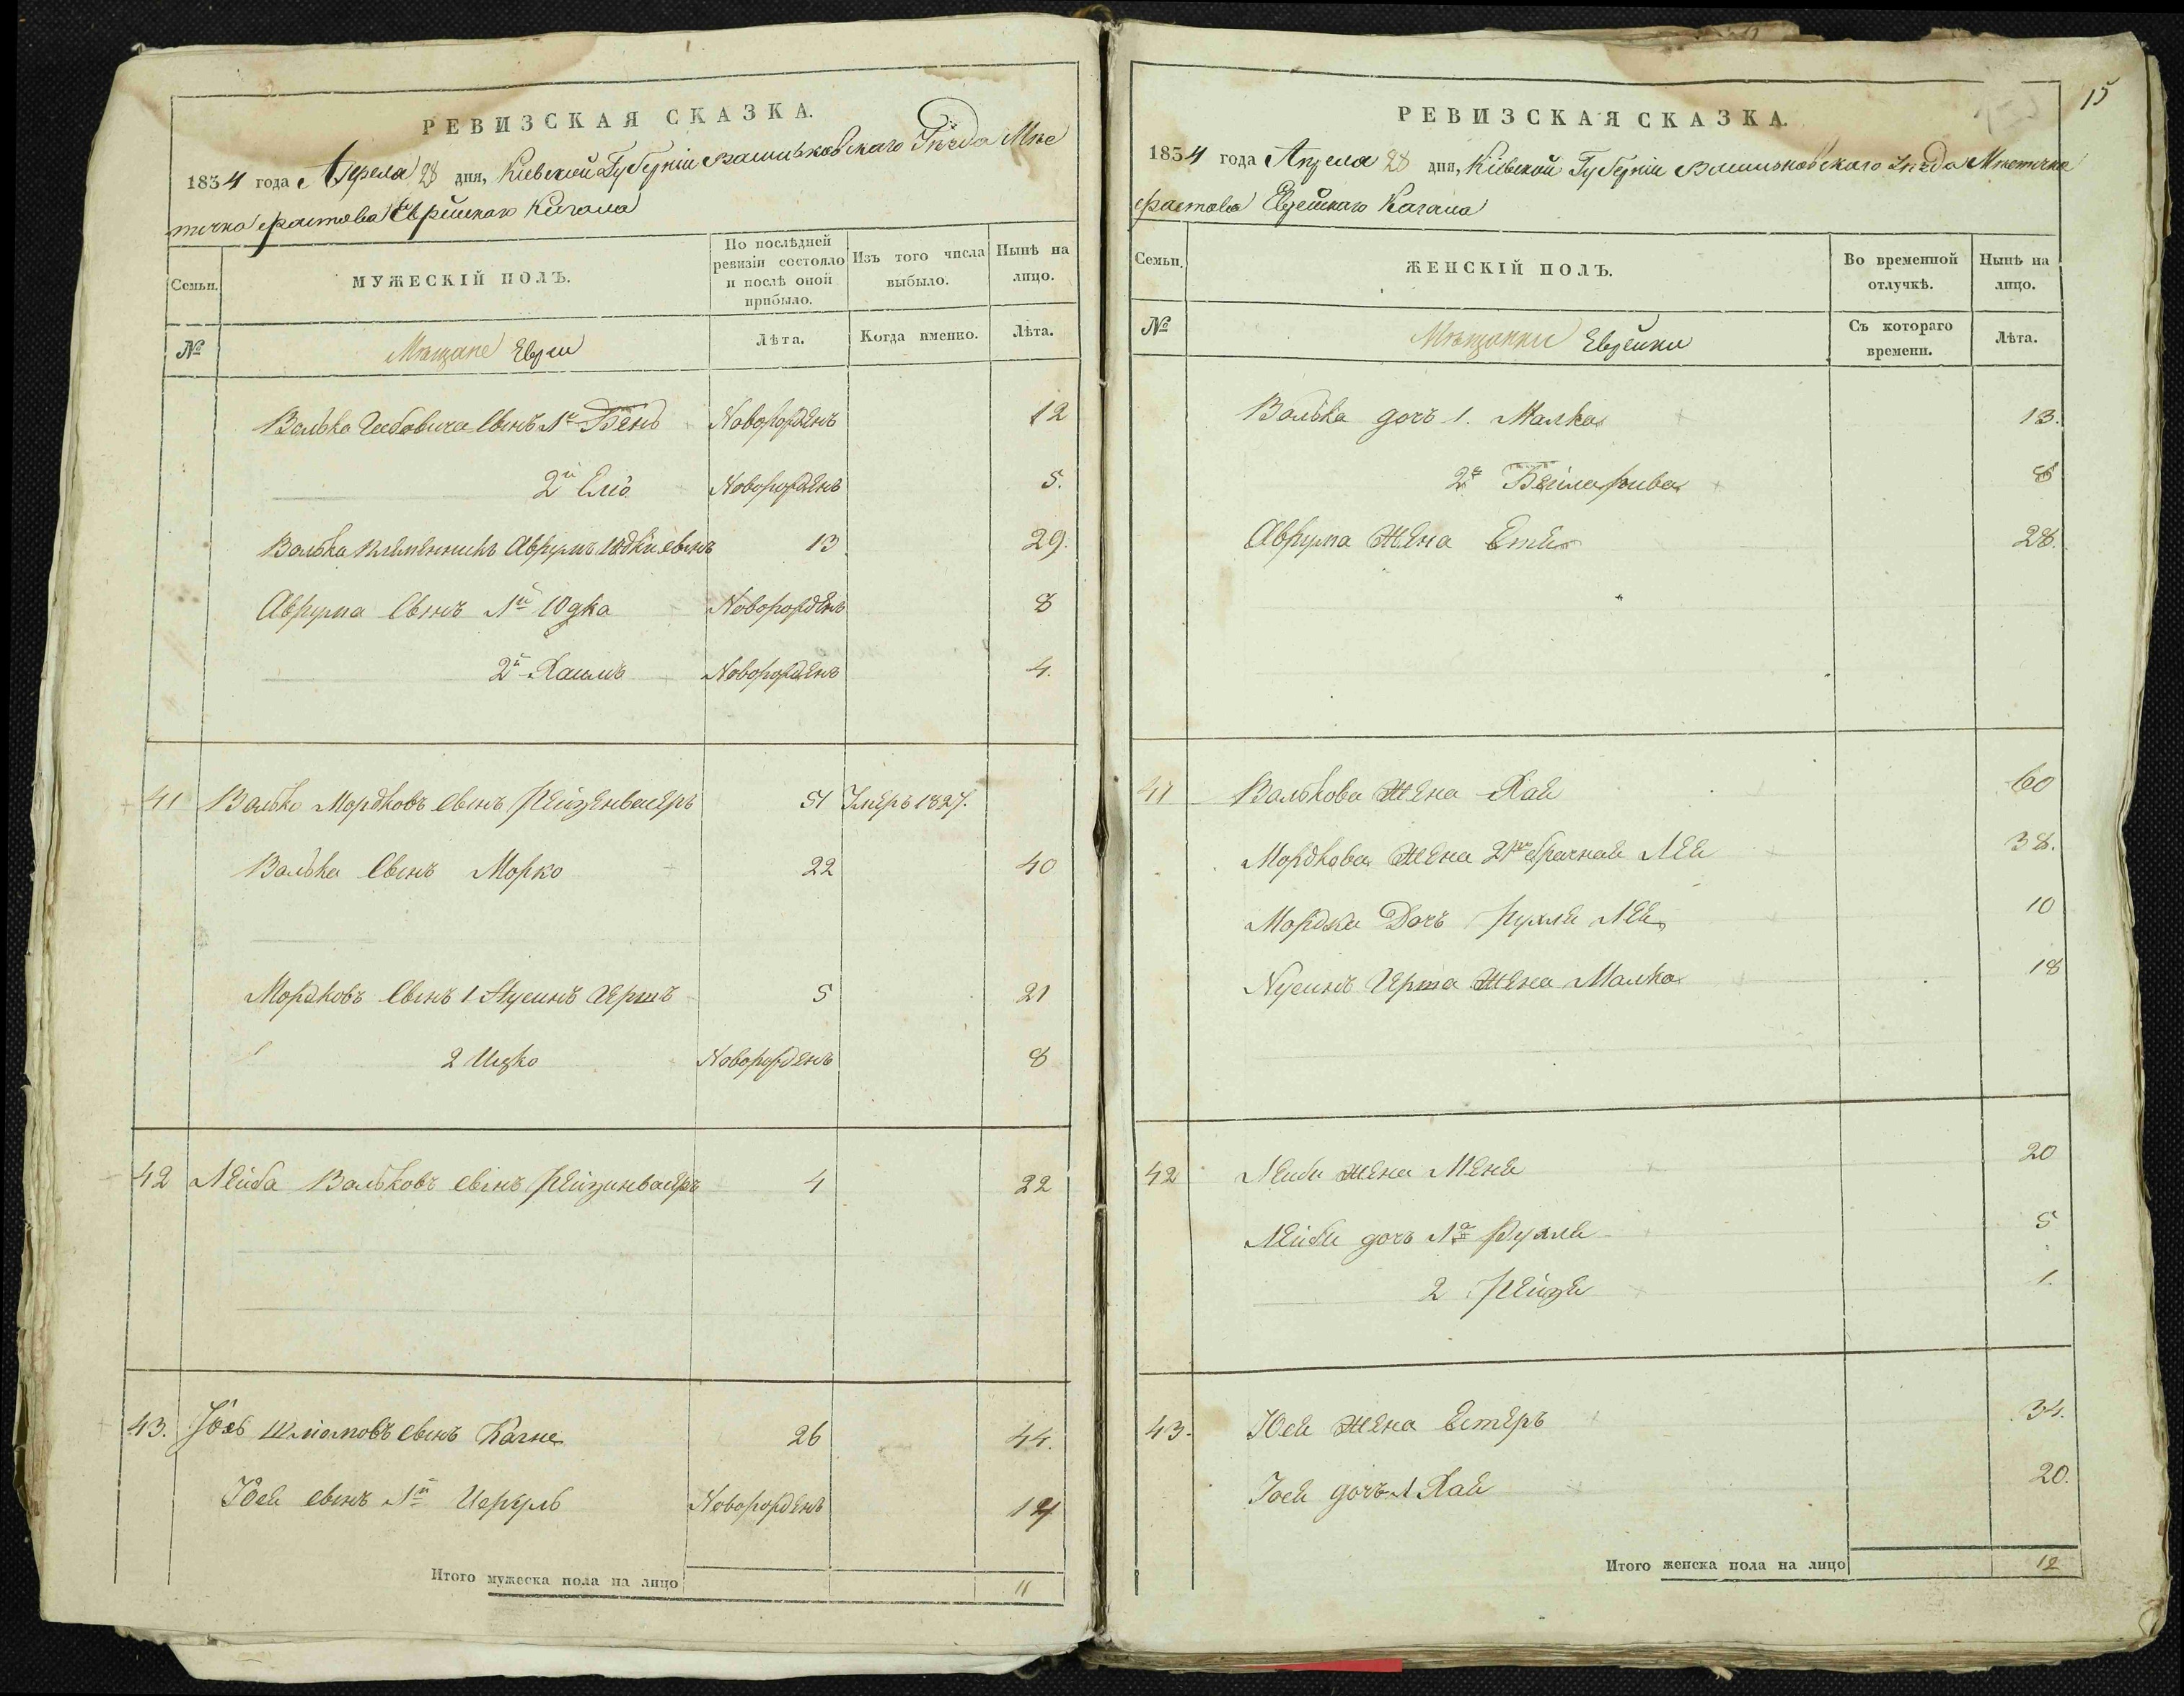 РЕВИЗСКАЯ СКАЗКА.
1834 года Апрела 28 дня, Кіевской Губерніи Васильковскаго Уѣзда Мѣс
течка Фастова Еврейскаго Кагала
Семьи.
МУЖЕСКІЙ ПОЛЪ.
По послѣдней ревизіи состояло и послѣ оной прибыло.
Изъ того числа выбыло.
Нынѣ на лицо.
№
Мѣщане Евреи
Лѣта.
Когда именно.
Лѣта.
Волька сынъ 1й Бень Новорожденъ 12
2й Еліо Новорожденъ 5.
Волька племенникъ Аврумъ Юдки сынъ 13 29.
Аврума сынъ 1й Юдка Новорожденъ 8
2й Хаимъ Новорожденъ 4.
41 Волько Мордковъ сынъ Рейзенвасеръ 51 Умеръ 1827.
Волька сынъ Морко 22 40
Мордковъ сынъ 1 Нусинъ Герша 5 21
2 Ицко Новорожденъ 8
42 Лейба Вольковъ сынъ Рейзинвасеръ 4 22
43. Іось Шліомовъ сынъ 26 44.
Іося сынъ 1й Новорожденъ 14
Итого мужеска пола на лицо 11
15
РЕВИЗСКАЯ СКАЗКА.
1834 года Апрела 28 дня, Кіевской Губерніи Васильковскаго Уѣзда Мѣстечка
Фастова Еврейскаго Кагала
Семьи.
ЖЕНСКІЙ ПОЛЪ.
Во временной отлучкѣ.
Нынѣ на лицо.
№
Мѣщанки Еврейки
Съ котораго времени.
Лѣта.
Волька дочь 1. Малка 13.
2я Бейла рива 8
Аврума жена Етя 28.
41 Волькова жена Хая 60
Мордкова жена 2го брачная Лея 38.
Мордки дочь Рухля Лея 10
Нусинъ Герша жена Малка 18
42 Лейби жена Меня 20
Лейби дочь 1я Рухля 5
2 Рейзя 1.
43. Іося жена Естеръ 34.
Іося дочь 1 Хая 20.
Итого женска пола на лицо 12